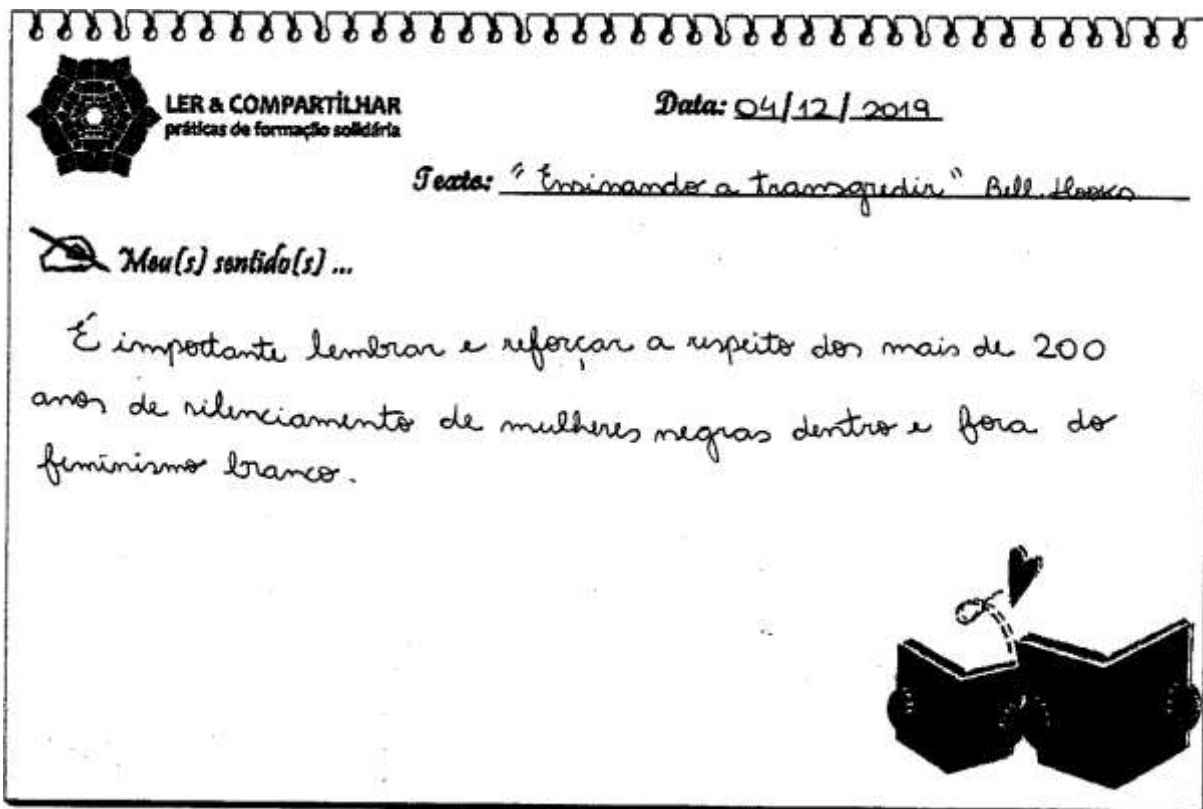 LER & COMPARTILHAR
práticas de formação solidária
Data: 04/12/2019
Texto: "Ensinando a transgredir" Bell Hooks
Meu(s) sentido(s) ...
É importante lembrar e reforçar a respeito dos mais de 200
anos de silenciamento de mulheres negras dentro e fora do
feminismo branco.